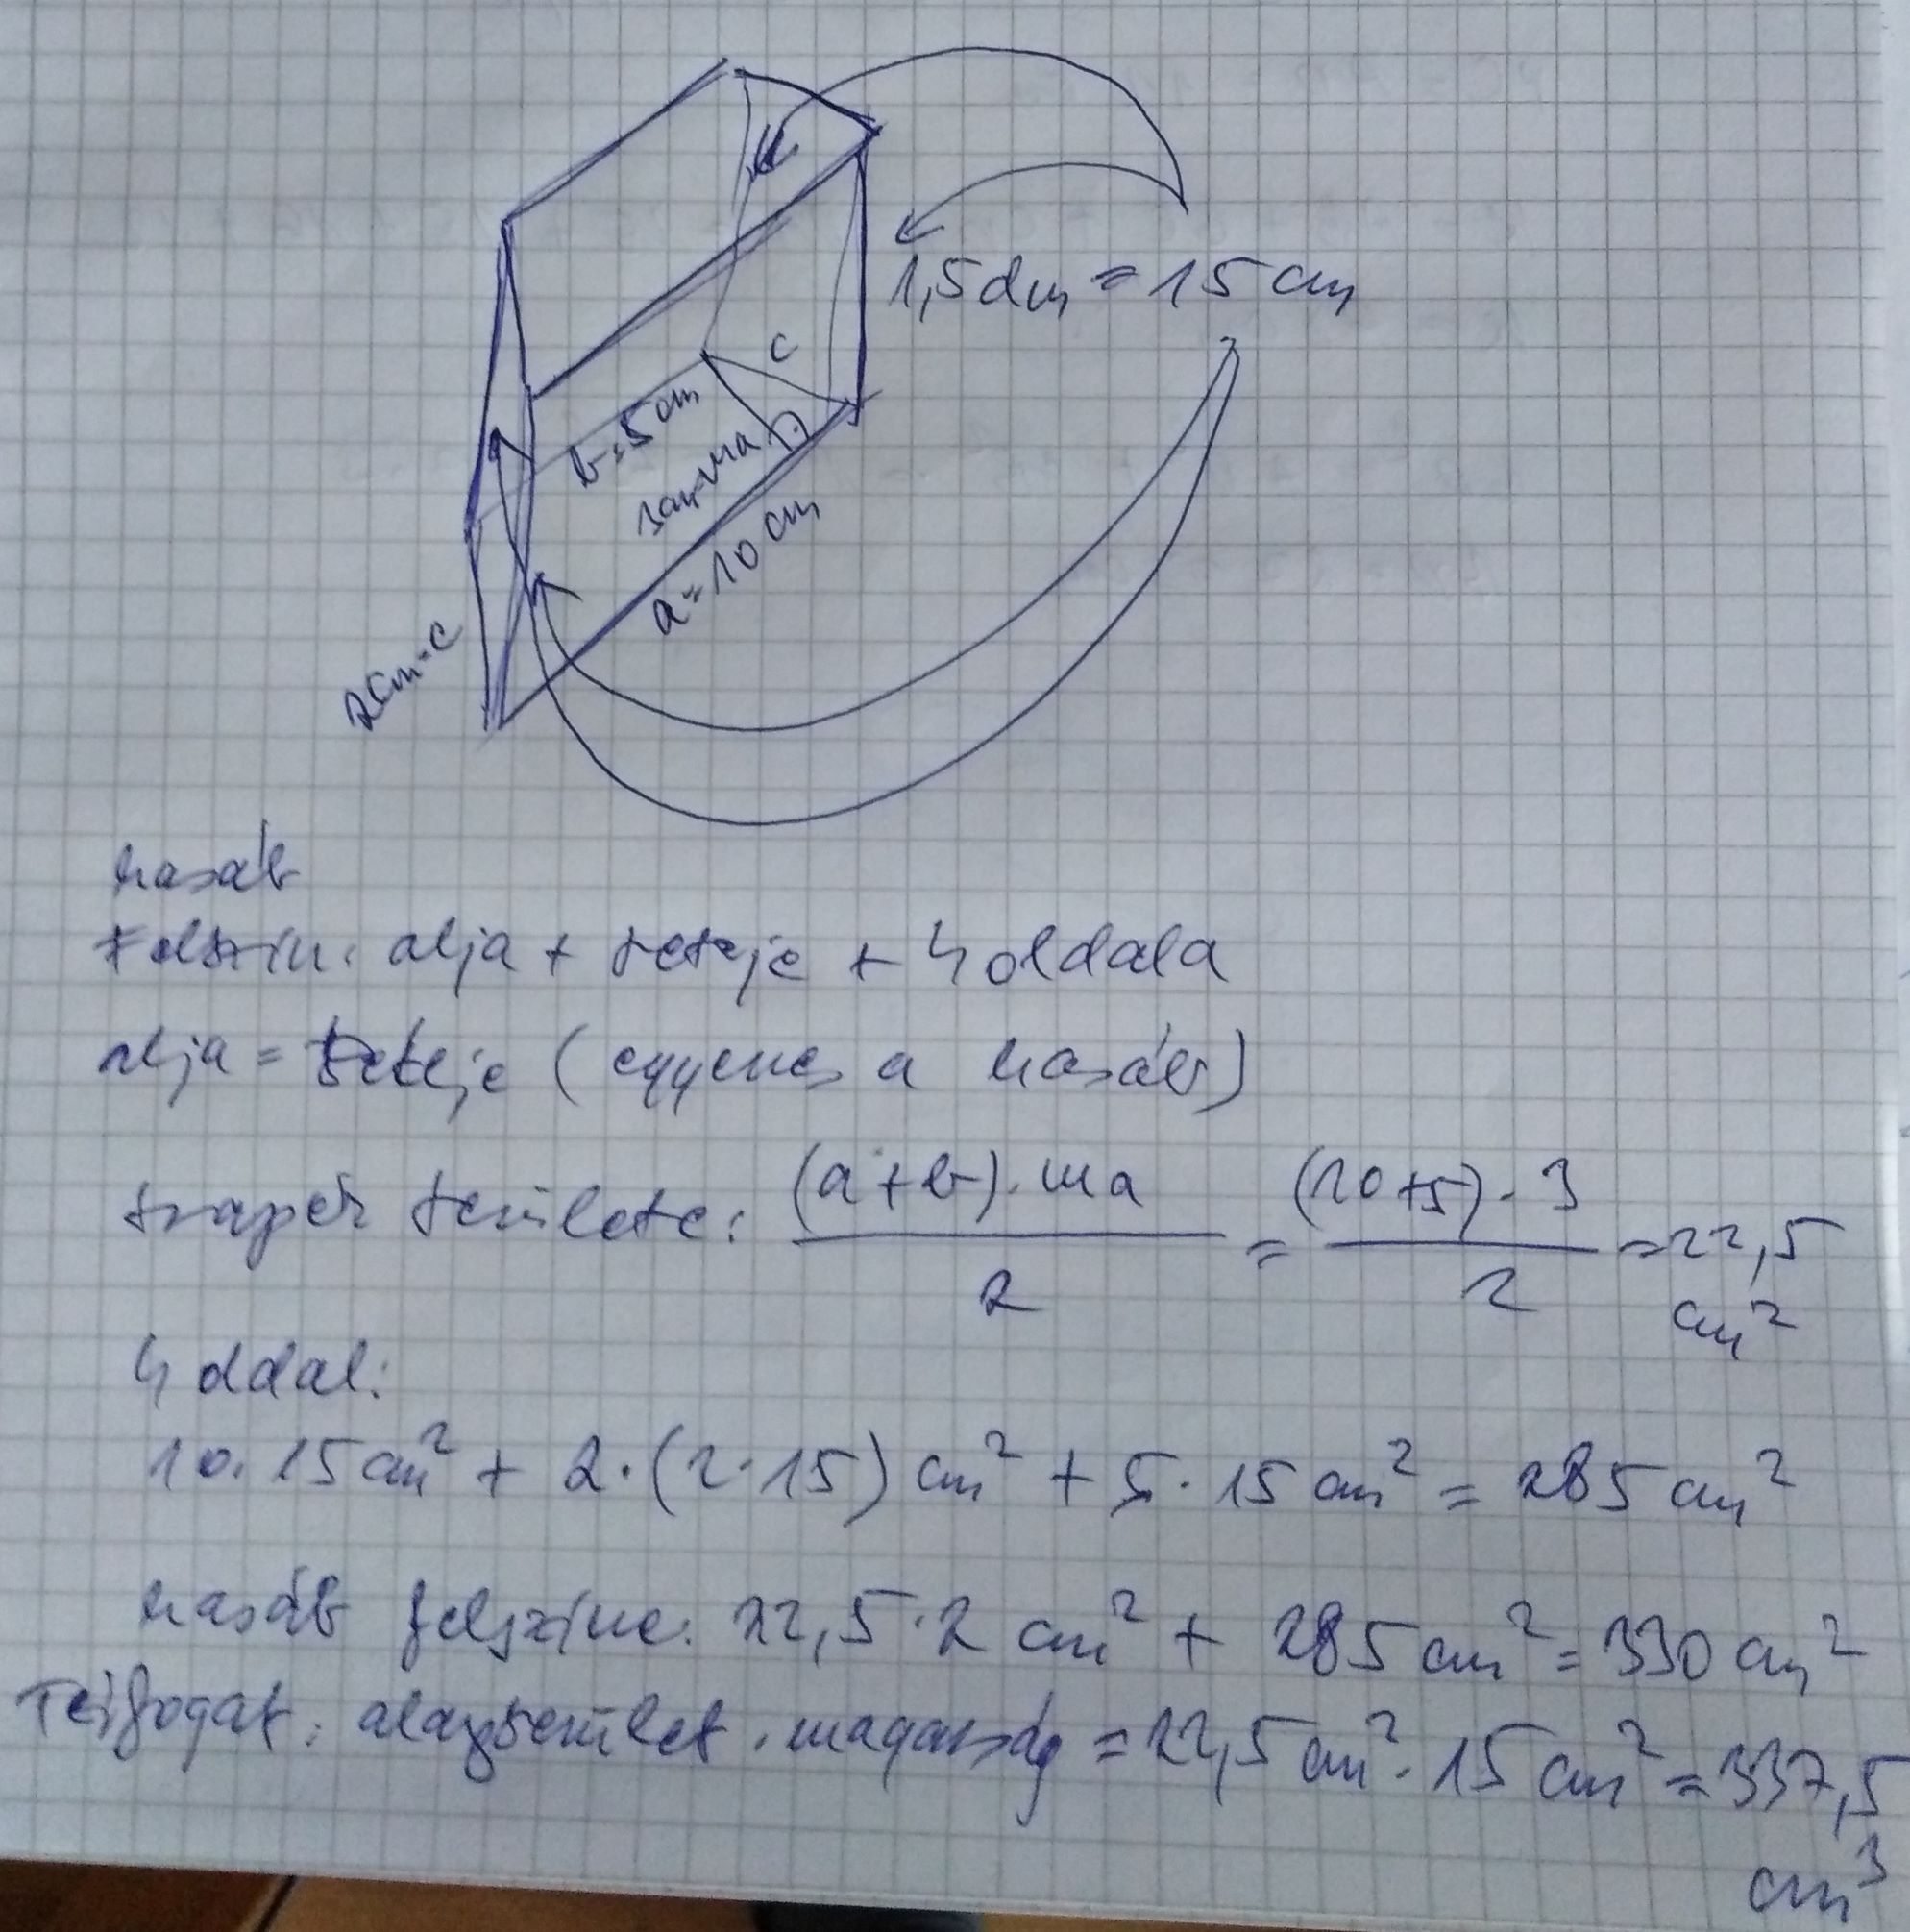 1,5dm = 15 cm
c
b=5cm
3cm=ma
a=10 cm
2cm=c
hasáb
Felszín: alja + teteje + 4 oldala
alja = teteje (egyenes a hasáb)
trapéz területe: (a+b)·ma / 2 = (10+5)·3 / 2 = 22,5 cm²
4 oldal:
10·15cm² + 2·(2·15) cm² + 5·15 cm² = 285 cm²
hasáb felszíne: 22,5·2 cm² + 285 cm² = 330 cm²
Térfogat: alapterület · magasság = 22,5 cm² · 15 cm² = 337,5 cm³